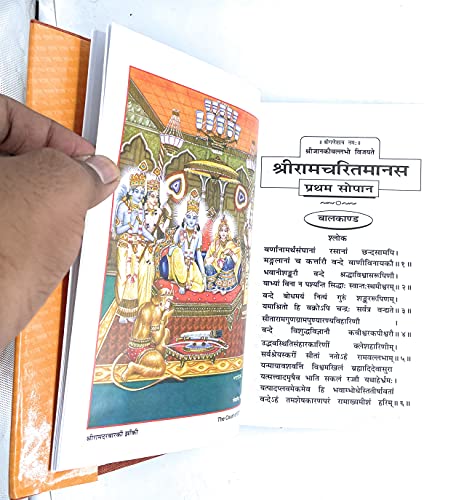 श्रीरामदरबारकी झाँकी
The Court of
॥ श्रीगणेशाय नमः ॥
श्रीजानकीवल्लभो विजयते
श्रीरामचरितमानस
प्रथम सोपान
बालकाण्ड
श्लोक
वर्णानामर्थसंघानां रसानां छन्दसामपि।
मङ्गलानां च कर्त्तारौ वन्दे वाणीविनायकौ॥१॥
भवानीशङ्करौ वन्दे श्रद्धाविश्वासरूपिणौ।
याभ्यां विना न पश्यन्ति सिद्धाः स्वान्तःस्थमीश्वरम्॥२॥
वन्दे बोधमयं नित्यं गुरुं शङ्कररूपिणम्।
यमाश्रितो हि वक्रोऽपि चन्द्रः सर्वत्र वन्द्यते॥३॥
सीतारामगुणग्रामपुण्यारण्यविहारिणौ।
वन्दे विशुद्धविज्ञानौ कवीश्वरकपीश्वरौ॥४॥
उद्भवस्थितिसंहारकारिणीं क्लेशहारिणीम्।
सर्वश्रेयस्करीं सीतां नतोऽहं रामवल्लभाम्॥५॥
यन्मायावशवर्त्ति विश्वमखिलं ब्रह्मादिदेवासुरा
यत्सत्त्वादमृषैव भाति सकलं रज्जौ यथाहेर्भ्रमः।
यत्पादप्लवमेकमेव हि भवाम्भोधेस्तितीर्षावतां
वन्देऽहं तमशेषकारणपरं रामाख्यमीशं हरिम्॥६॥